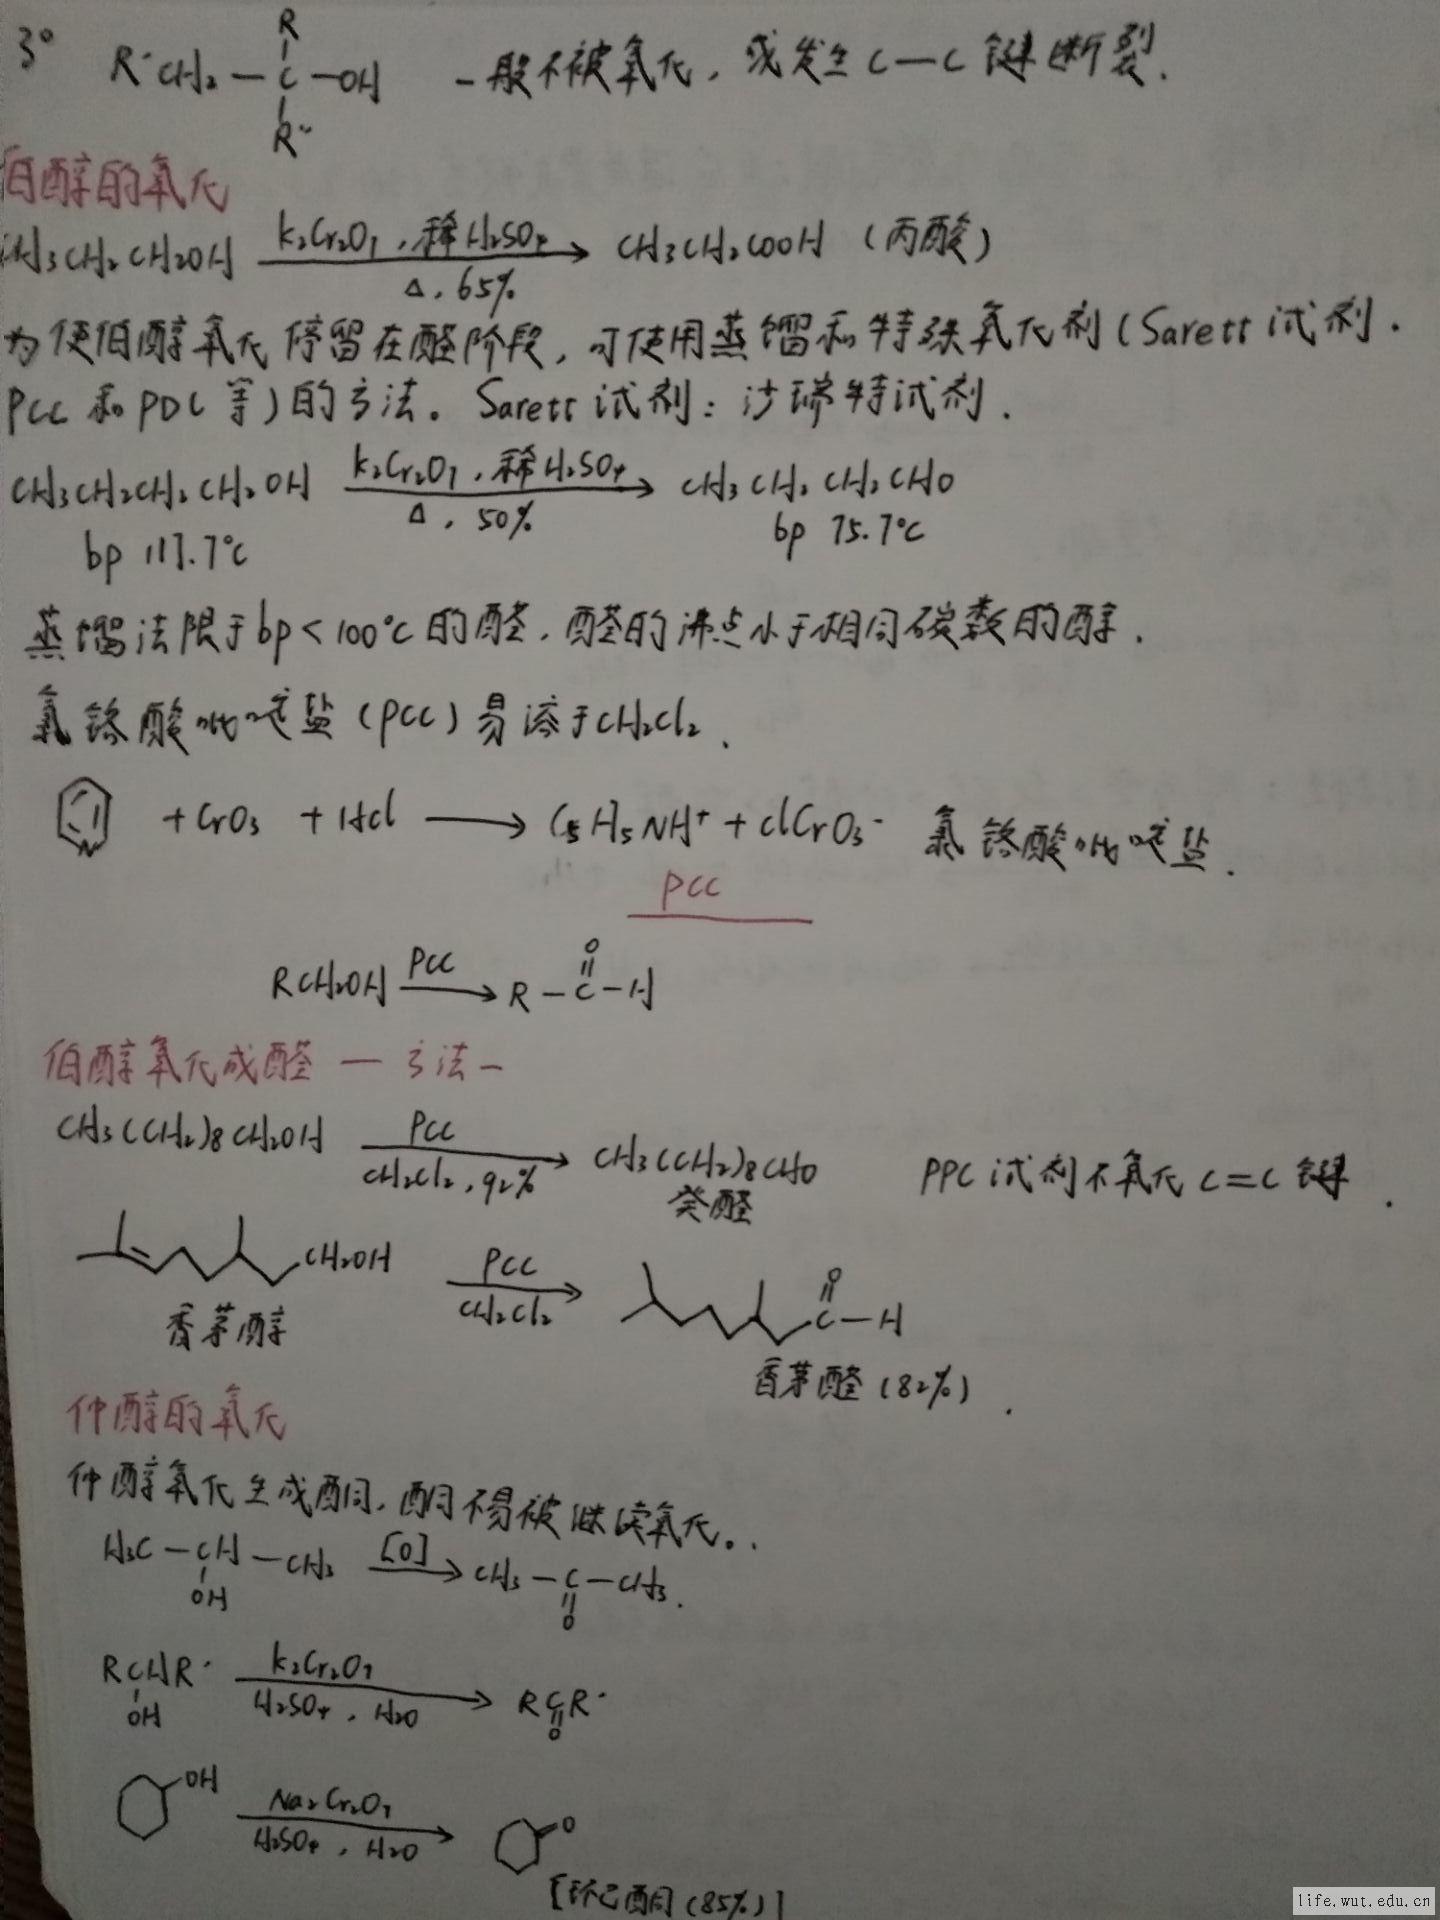 3° R'CH₂—C(R)(R'')—OH 一般不被氧化，或发生C—C键断裂.
伯醇的氧化
CH₃CH₂CH₂OH K₂Cr₂O₇，稀H₂SO₄ △，65% → CH₃CH₂COOH（丙酸）
为使伯醇氧化停留在醛阶段，可使用蒸馏和特殊氧化剂（Sarett试剂.
PCC和PDC等）的方法。Sarett试剂：沙瑞特试剂.
CH₃CH₂CH₂CH₂OH K₂Cr₂O₇，稀H₂SO₄ △，50% → CH₃CH₂CH₂CHO
bp 117.7℃ bp 75.7℃
蒸馏法限于bp<100℃的醛，醛的沸点小于相同碳数的醇.
氯铬酸吡啶盐（PCC）易溶于CH₂Cl₂.
N +CrO₃ +HCl → C₅H₅NH⁺+ClCrO₃⁻ 氯铬酸吡啶盐.
PCC
RCH₂OH PCC → R—C(=O)—H
伯醇氧化成醛—方法一
CH₃(CH₂)₈CH₂OH PCC CH₂Cl₂，92% → CH₃(CH₂)₈CHO PPC试剂不氧化C=C键.
癸醛
CH₂OH PCC CH₂Cl₂ → C(=O)—H
香茅醇 香茅醛（82%）.
仲醇的氧化
仲醇氧化生成酮，酮不易被继续氧化。.
H₃C—CH(OH)—CH₃ [O] → CH₃—C(=O)—CH₃.
RCHR' OH K₂Cr₂O₇ H₂SO₄，H₂O → RCR' O
OH Na₂Cr₂O₇ H₂SO₄，H₂O → O
[环己酮（85%）]
life.wut.edu.cn